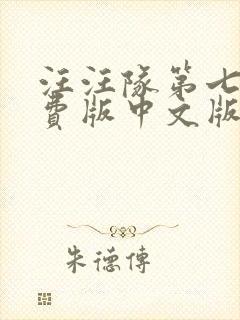 汪汪隊第七
費版中文版
朱德傳